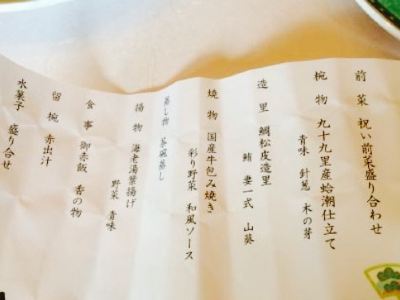 前菜 祝い前菜盛り合わせ
椀物 九十九里産蛤潮仕立て
青味 針葱 木の芽
造里 鯛松皮造里
鮪 妻一式 山葵
焼物 国産牛包み焼き
彩り野菜 和風ソース
蒸し物 茶碗蒸し
揚物 海老湯葉揚げ
野菜 青味
食事 御赤飯 香の物
留椀 赤出汁
水菓子 盛り合せ